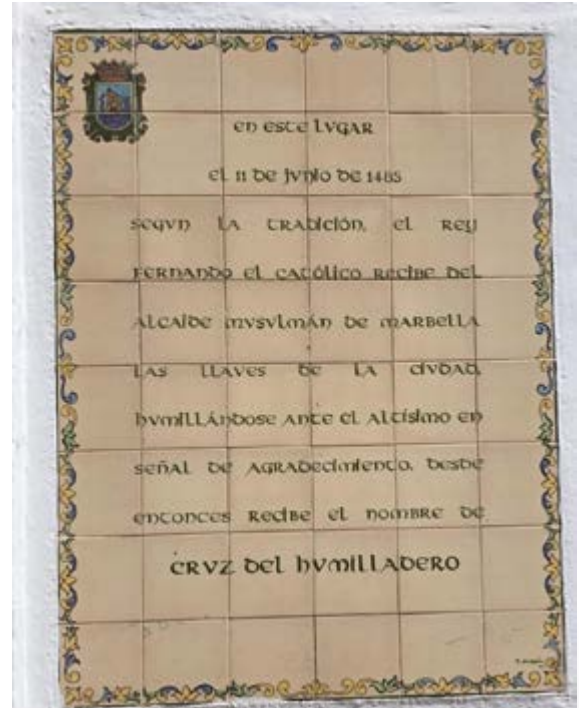 EN ESTE LVGAR
EL 11 DE JVNIO DE 1485
SEGVN LA TRADICIÓN, EL REY
FERNANDO EL CATÓLICO RECIBE DEL
ALCAIDE MVSVLMÁN DE MARBELLA
LAS LLAVES DE LA CIVDAD,
HVMILLÁNDOSE ANTE EL ALTÍSIMO EN
SEÑAL DE AGRADECIMIENTO. DESDE
ENTONCES RECIBE EL NOMBRE DE
CRVZ DEL HVMILLADERO